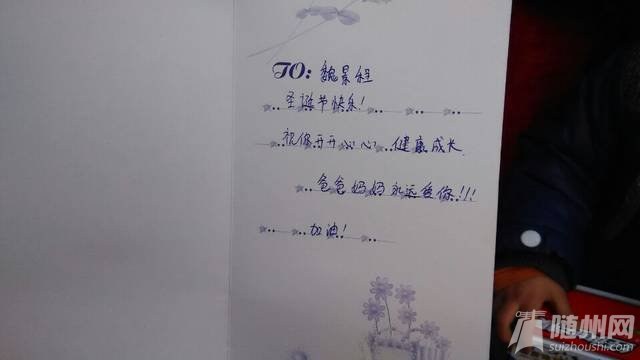 TO: 魏景程
圣诞节快乐!
祝你开开心心 健康成长
爸爸妈妈永远爱你!!!
加油!
随州网
suizhoushi.com